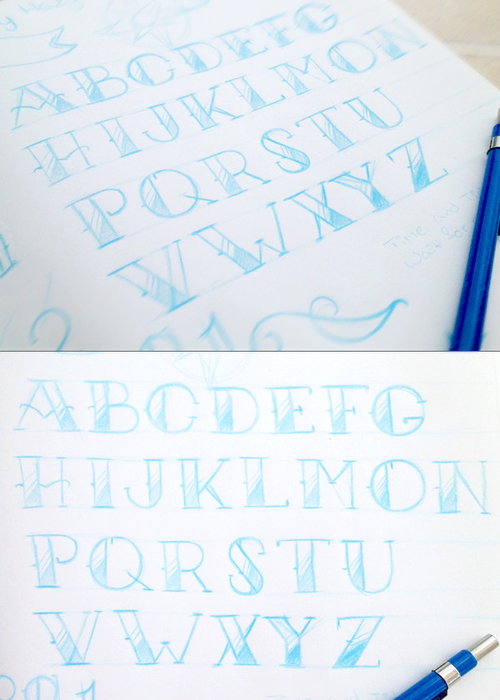 ABCDEFG
HIJKLMON
PQRSTU
VWXYZ
Time and
Wait for
2
ABCDEFG
HIJKLMON
PQRSTU
VWXYZ